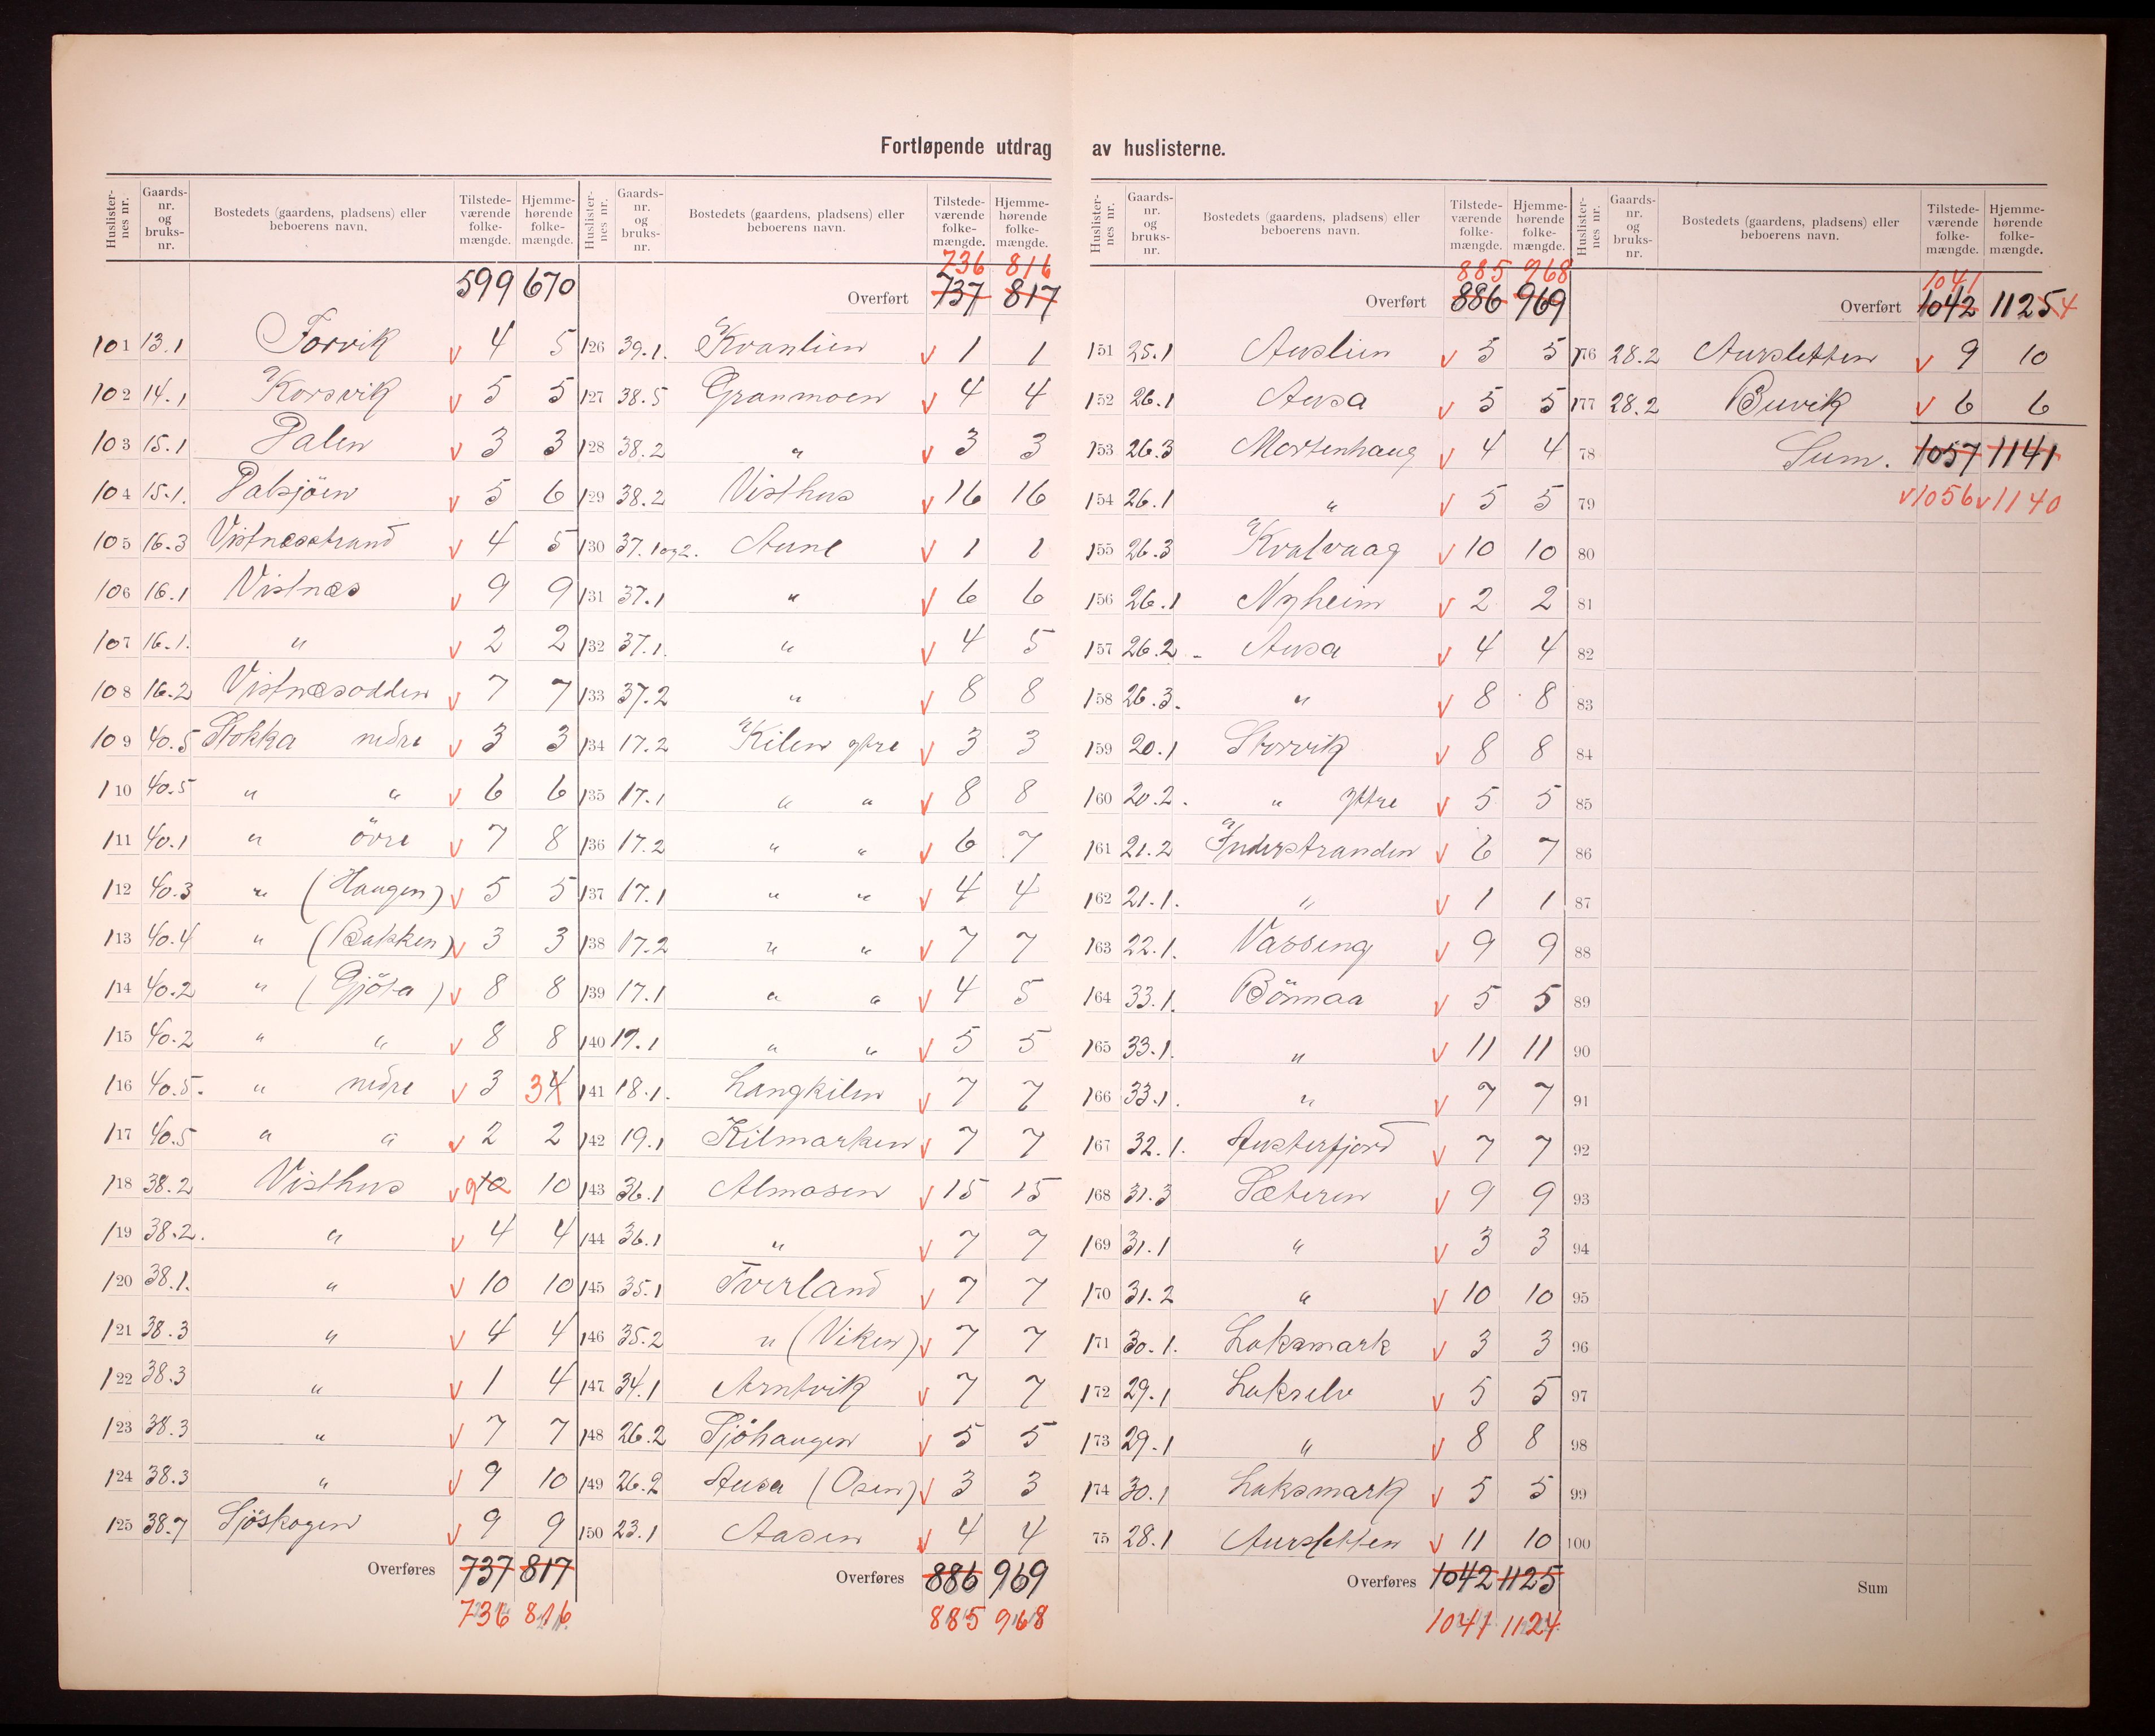 Fortløpende utdrag av huslisterne.
Huslisternes nr. Gaards-nr. og bruks-nr. Bostedets (gaardens, pladsens) eller beboerens navn. Tilstede-værende folke-mængde. Hjemme-hørende folke-mængde.
599 670
101 13.1 Forvik v 4 5
102 14.1 Korsvik v 5 5
103 15.1 Dalen v 3 3
104 15.1. Dalsjöen v 5 6
105 16.3 Vistnesstrand v 4 5
106 16.1 Vistnes v 9 9
107 16.1. " v 2 2
108 16.2 Vistnesodden v 7 7
109 40.5 Stokka nedre v 3 3
110 40.5 " " v 6 6
111 40.1 " övre v 7 8
112 40.3 " (Haugen) v 5 5
113 40.4 " (Bakken) v 3 3
114 40.2 " (Gjöta) v 8 8
115 40.2 " " v 8 8
116 40.5. " nedre v 3 3 4
117 40.5 " " v 2 2
118 38.2 Visthus v 9 10 10
119 38.2. " v 4 4
120 38.1. " v 10 10
121 38.3 " v 4 4
122 38.3 " v 1 4
123 38.3 " v 7 7
124 38.3 " v 9 10
125 38.7 Sjöskogen v 9 9
Overføres 737 817
736 816
Huslisternes nr. Gaards-nr. og bruks-nr. Bostedets (gaardens, pladsens) eller beboerens navn. Tilstede-værende folke-mængde. Hjemme-hørende folke-mængde.
736 816
Overført 737 817
126 39.1. Kvanlien v 1 1
127 38.5 Granmoen v 4 4
128 38.2 " v 3 3
129 38.2 Visthus v 16 16
130 37.1og2. Aune v 1 1
131 37.1 " v 6 6
132 37.1. " v 4 5
133 37.2 " v 8 8
134 17.2 Kilen ytre v 3 3
135 17.1 " " v 8 8
136 17.2 " " v 6 7
137 17.1 " " v 4 4
138 17.2 " " v 7 7
139 17.1 " " v 4 5
140 17.1 " " v 5 5
141 18.1. Langkilen v 7 7
142 19.1 Kilmarken v 7 7
143 36.1 Almosen v 15 15
144 36.1 " v 7 7
145 35.1 Tverland v 7 7
146 35.2 " (Viken) v 7 7
147 34.1 Arntvik v 7 7
148 26.2 Sjöhaugen v 5 5
149 26.2 Ausa (Osen) v 3 3
150 23.1 Aasen v 4 4
Overføres 886 969
885 968
Huslister-nes nr. Gaards-nr. og bruks-nr. Bostedets (gaardens, pladsens) eller beboerens navn. Tilstede-værende folke-mængde. Hjemme-hørende folke-mængde.
885 968
Overført 886 969
151 25.1 Auslien v 5 5
152 26.1 Ausa v 5 5
153 26.3 Mortenhaug v 4 4
154 26.1 " v 5 5
155 26.3 Kvalvaag v 10 10
156 26.1 Nyheim v 2 2
157 26.2 - Ausa v 4 4
158 26.3. " v 8 8
159 20.1 Storvik v 8 8
160 20.2. " ytre v 5 5
161 21.2 Inderstranden v 6 7
162 21.1. " v 1 1
163 22.1. Vasseng v 9 9
164 33.1. Bönnaa v 5 5
165 33.1. " v 11 11
166 33.1. " v 7 7
167 32.1. Austerfjord v 7 7
168 31.3 Sæteren v 9 9
169 31.1 " v 3 3
170 31.2 " v 10 10
171 30.1. Laksmark v 3 3
172 29.1 Lakselv v 5 5
173 29.1 " v 8 8
174 30.1 Laksmark v 5 5
75 28.1 Aursletten v 11 10
Overføres 1042 1125
1041 1124
Huslister-nes nr. Gaards-nr. og bruks-nr. Bostedets (gaardens, pladsens) eller beboerens navn. Tilstede-værende folke-mængde. Hjemme-hørende folke-mængde.
1041
Overført 1042 1125 4
176 28.2 Aursletten v 9 10
177 28.2 Buvik v 6 6
78 Sum. 1057 1141
79 v 1056 v 1140
80
81
82
83
84
85
86
87
88
89
90
91
92
93
94
95
96
97
98
99
100
Sum